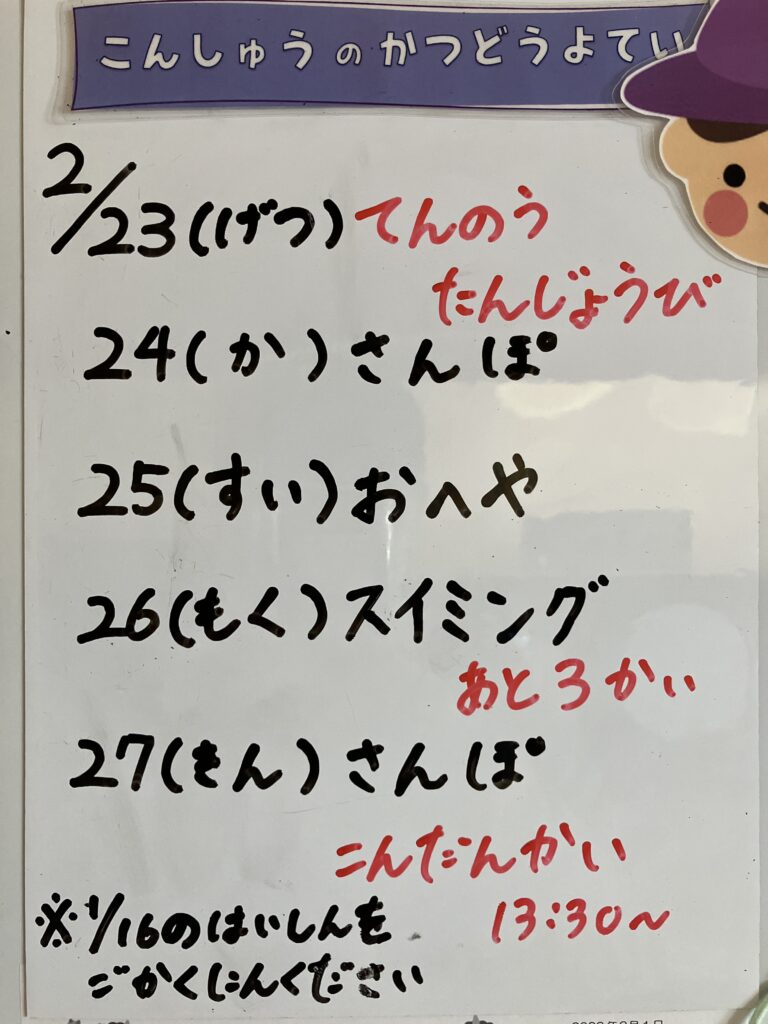 こんしゅうのかつどうよてい
2/23(げつ)てんのう
たんじょうび
24(か)さんぽ
25(すい)おへや
26(もく)スイミング
あと3かい
27(きん)さんぽ
こんだんかい
13:30〜
※1/16のはいしんを
ごかくにんください